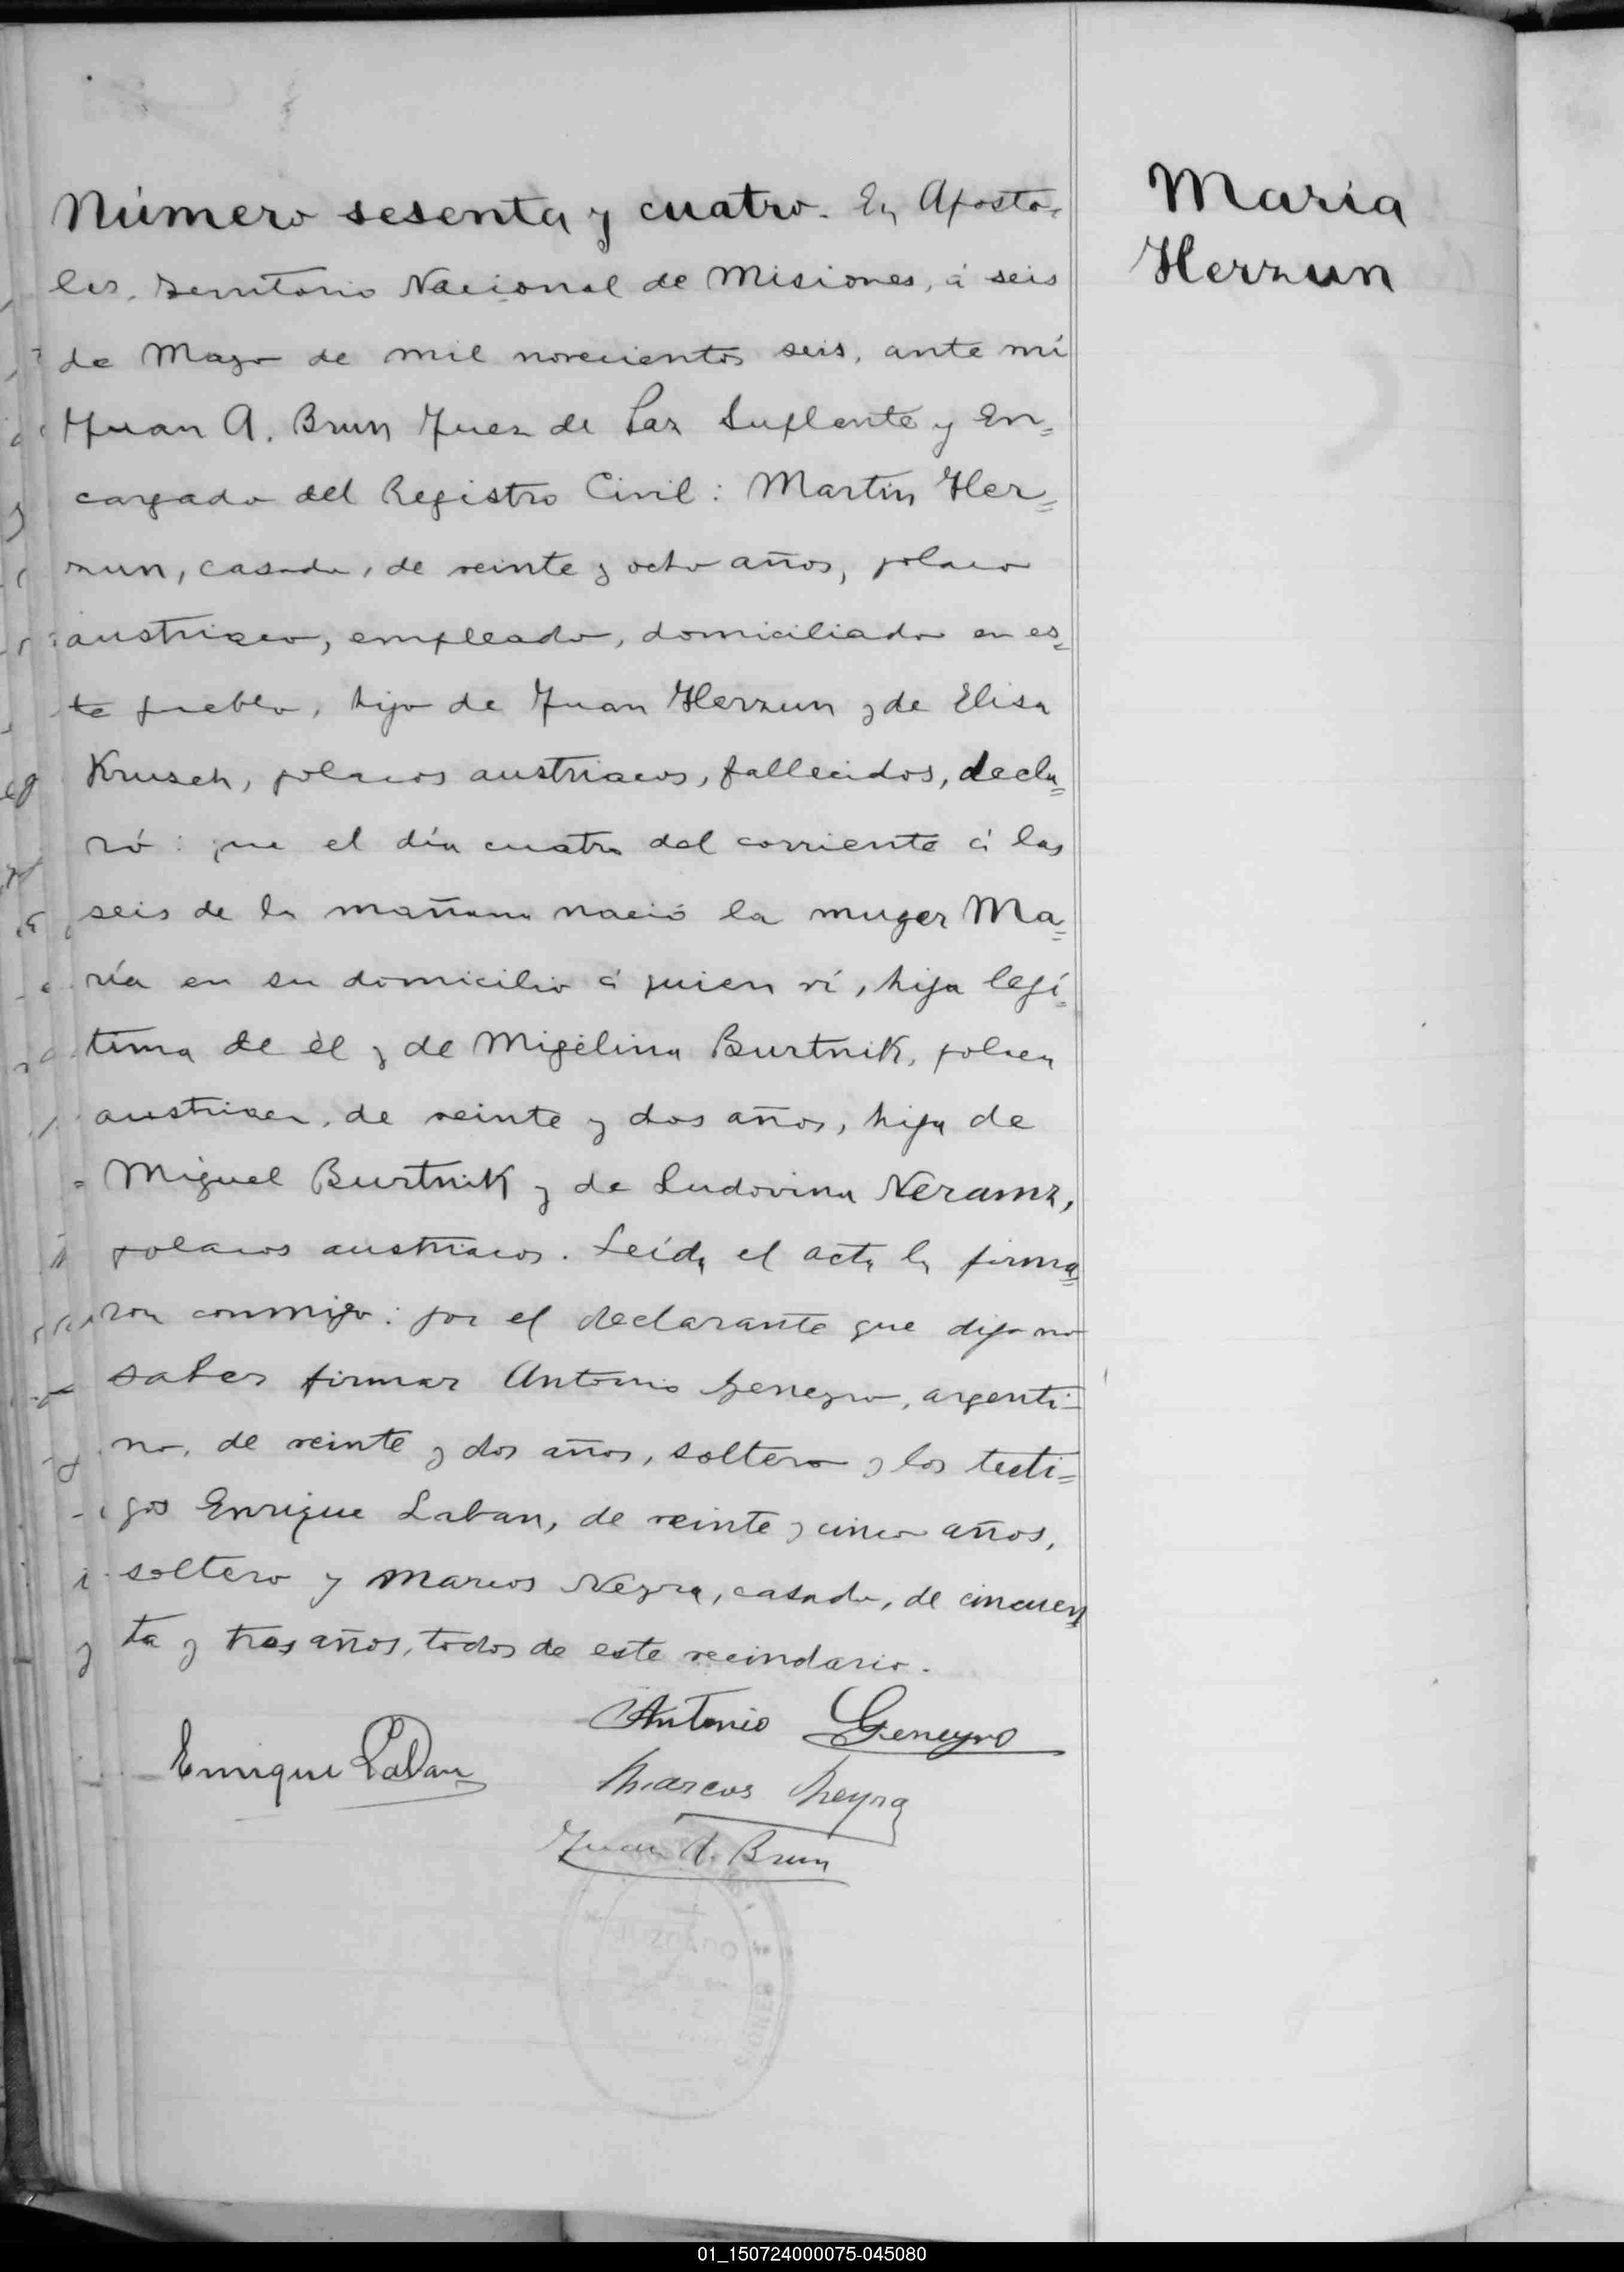 María
Herzun
Número sesenta y cuatro. En Aposto=
les, Territorio Nacional de Misiones, á seis
de Mayo de mil novecientos seis, ante mí
Juan A. Brun Juez de Paz Suplente y En=
cargado del Registro Civil: Martin Her=
zun, casado, de veinte y ocho años, polaco
austriaco, empleado, domiciliado en es=
te pueblo, hijo de Juan Herzun y de Elisa
Krusch, polacos austriacos, fallecidos, decla=
ró: que el día cuatro del corriente á las
seis de la mañana nació la muger Ma=
ría en su domicilio á quien ví, hija legí=
tima de él y de Migélina Burtnik, polaca
austriaca, de veinte y dos años, hija de
Miguel Burtnik y de Ludovina Neramz,
polacos austriacos. Leída el acta la firma=
ron conmigo: por el declarante que dijo no
saber firmar Antonio Geneyro, argenti=
no, de veinte y dos años, soltero y los testi=
gos Enrique Laban, de veinte y cinco años,
soltero y Marcos Neyra, casado, de cincuen
ta y tres años, todos de este vecindario.
Antonio Geneyro
Enrique Laban
Marcos Neyra
Juan A. Brun
01_150724000075-045080